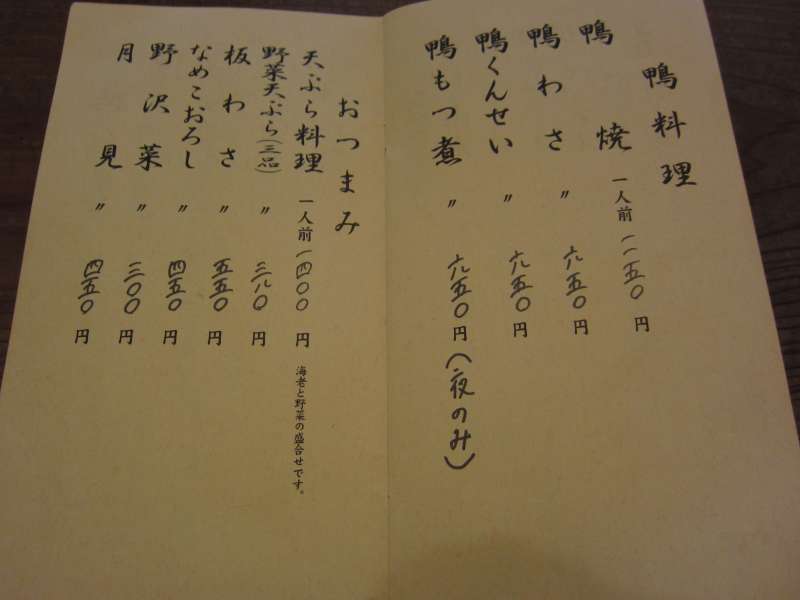 鴨料理
鴨焼 一人前 一一五〇円
鴨わさ 〃 六五〇円
鴨くんせい 〃 六五〇円
鴨もつ煮 〃 六五〇円(夜のみ)
おつまみ
天ぷら料理 一人前 一四〇〇円 海老と野菜の盛合せです。
野菜天ぷら(三品) 〃 三八〇円
板わさ 〃 五五〇円
なめこおろし 〃 四五〇円
野沢菜 〃 三〇〇円
月見 〃 四五〇円